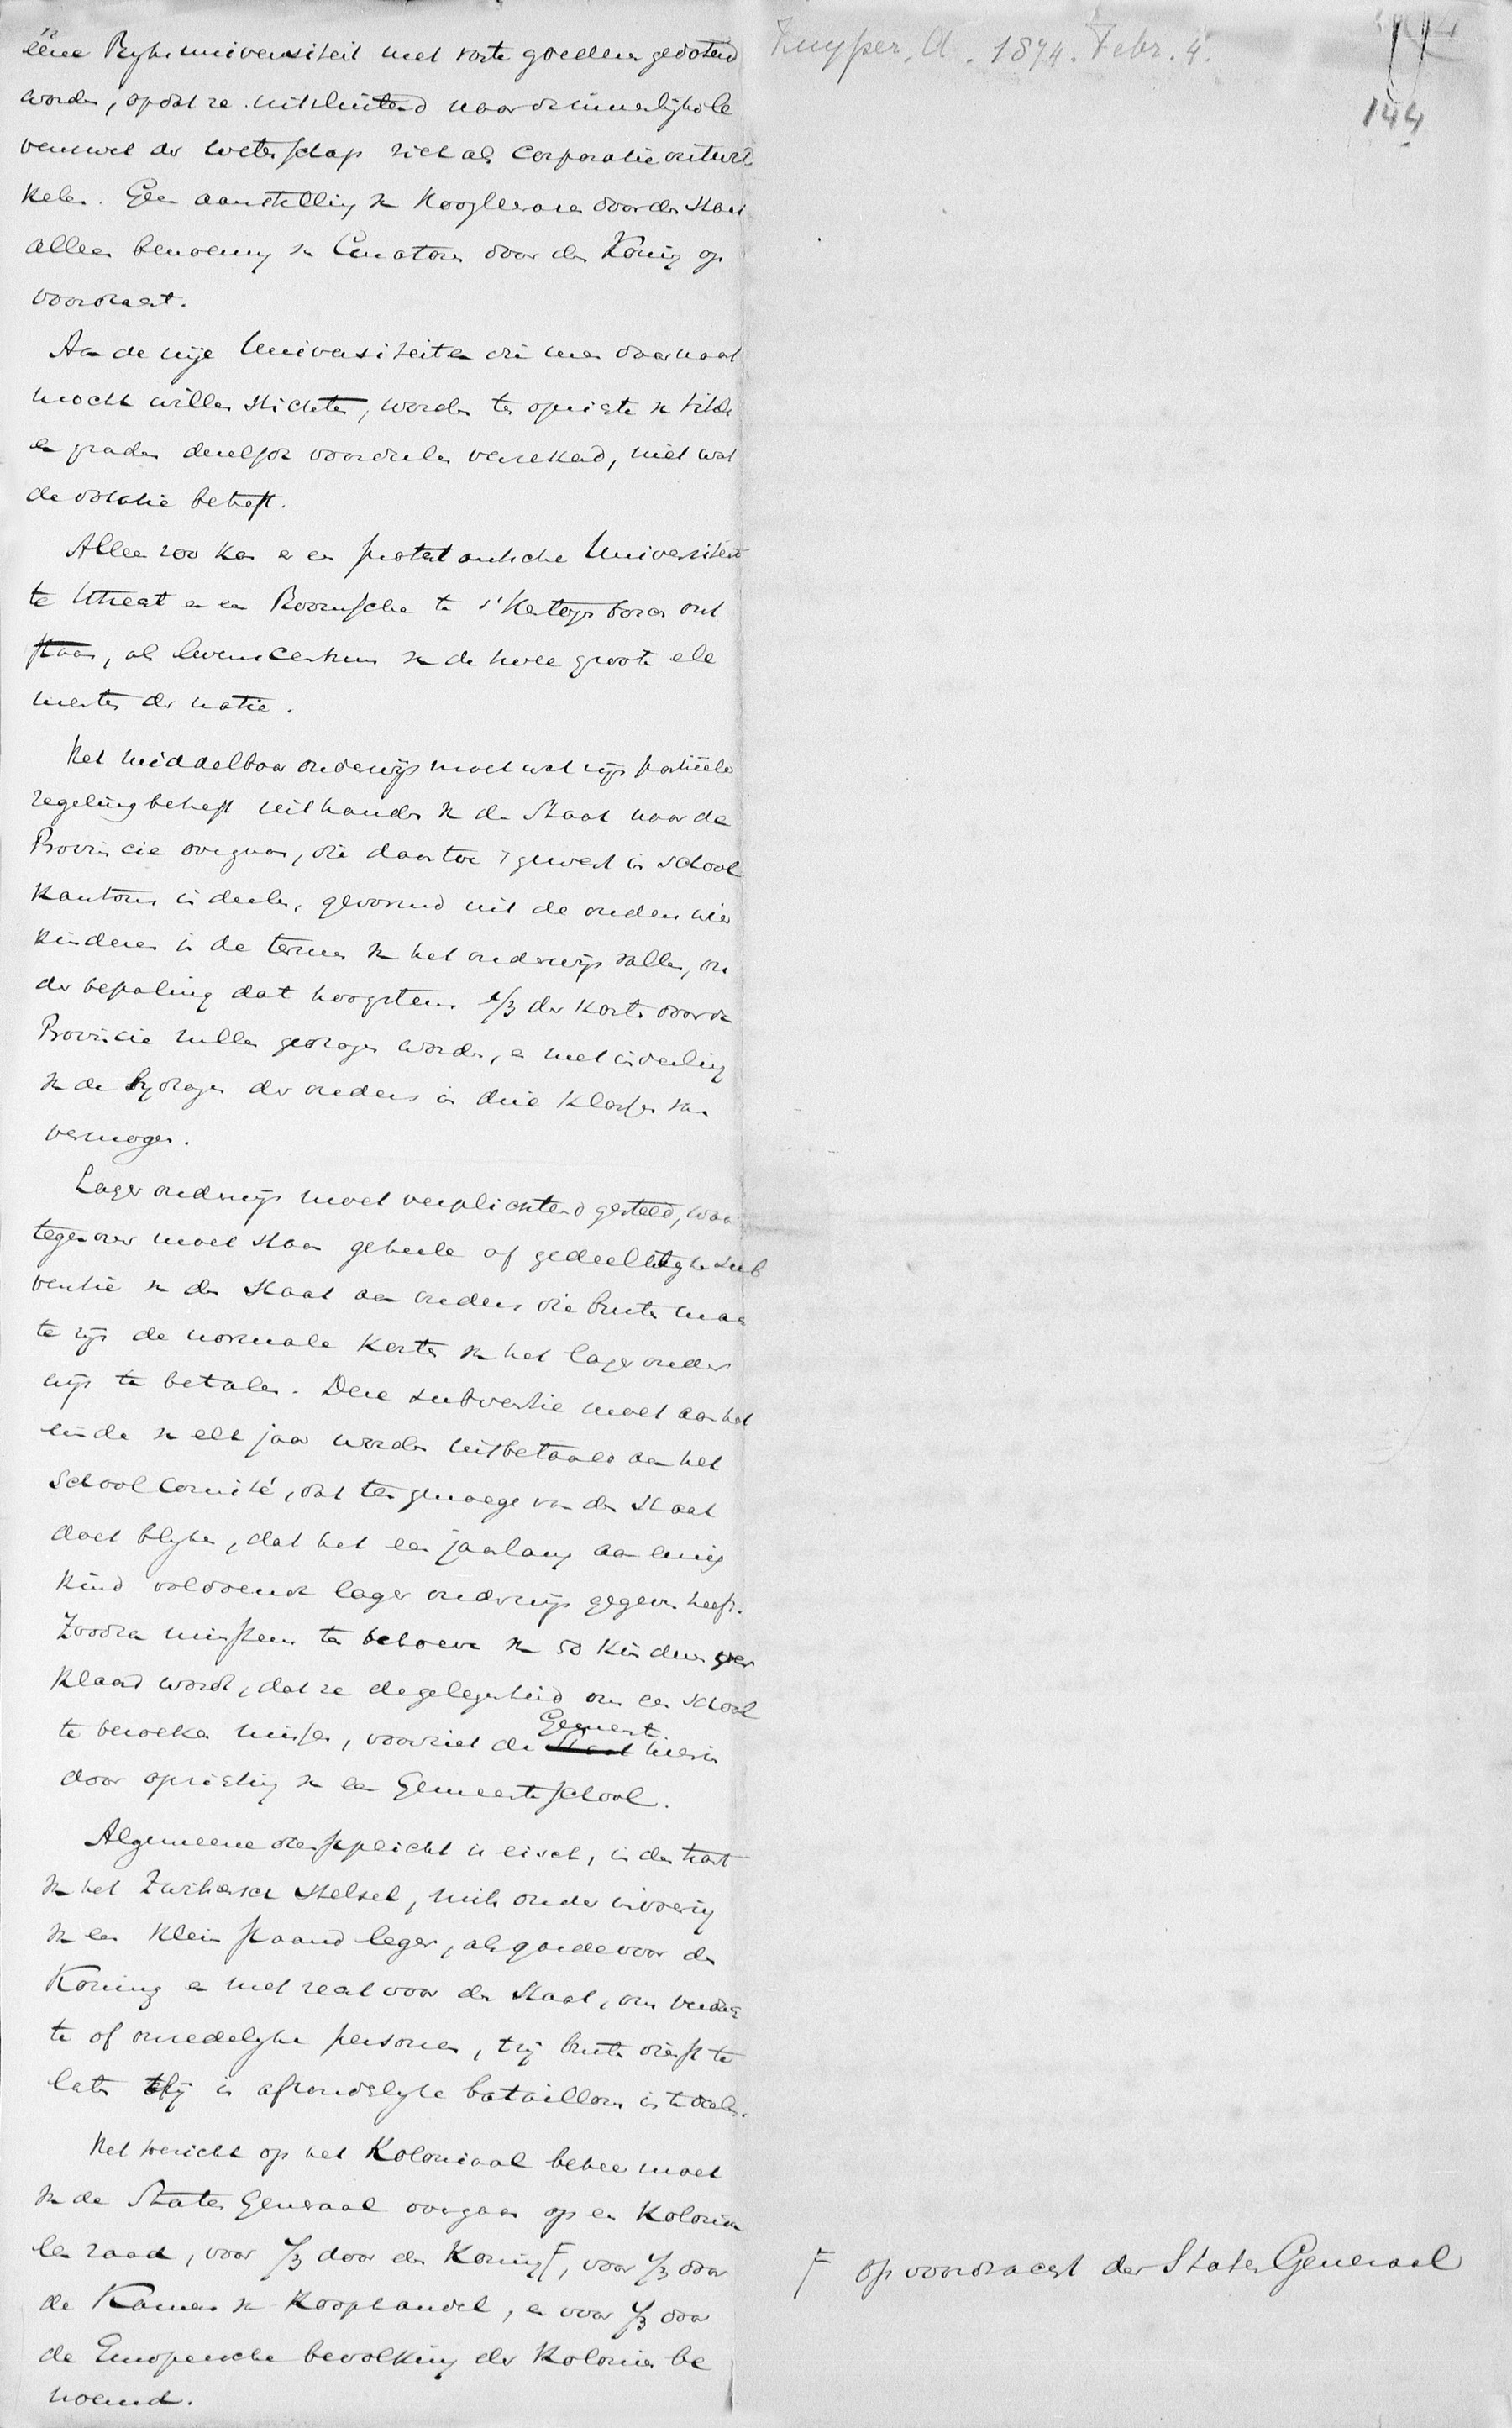 Kuyper, A. 1874. Febr. 4.
144
ééne Ryksuniversiteit met vaste goederen gedoteerd
worden, opdat ze uitsluitend naar de innerlijke le
venswet der wetenschap zich als Corporatie ontwik
kelen. Geen aanstelling van Hoogleeraren door den Staat
alleen benoeming van Curatoren door den Koning op
voordracht.
Aan de vrije Universiteiten die men daarnaast
mocht willen stichten, worden ten opzichte van titels
en graden dezelfde voordeelen verzekerd, niet wat
de dotatie betreft.
Alleen zoo kan er een protestantsche Universiteit
te Utrecht en een Roomsche te s'Hertogenbosch ont
staan, als levenscentrum van de twee groote ele
menten der natie.
Het middelbaar onderwijs moet wat zijn partiëele
regeling betreft uit handen van den Staat naar de
Provincie overgaan, die daartoe 't gewest in school
kantons indeele, gevormd uit de ouders wier
kinderen in de termen van het onderwijs vallen, on
der bepaling dat hoogstens 1/3 der kosten door de
Provincie zullen gedragen worden, en met indeeling
van de bydragen der ouders in drie klassen van
vermogen.
Lager onderwijs moet verplichtend gesteld, waar
tegenover moet staan geheele of gedeeltelijke sub
ventie van den Staat aan ouders die buiten maa
te zijn de normale kosten van het lager onder
wijs te betalen. Deze subventie moet aan het
einde van elk jaar worden uitbetaald aan het
School comité, dat ten genoege van den Staat
doet blyken, dat het een jaar lang aan eenig
kind voldoende lager onderwijs gegeven heeft.
Zoodra minstens ten behoeve van 50 kinderen ver
klaard wordt, dat ze de gelegenheid om een school
te bezoeken missen, voorziet de Staat Gemeente hierin
door oprichting van een Gemeenteschool.
Algemeene dienstplicht is eisch, in den trant
van het Zwitsersch stelsel, mits onder invoering
van een klein staand leger, als garde voor den
Koning en met recht voor den Staat, om verdach
te of onzedelyke personen, tzij buiten dienst te
laten tzij in afzonderlyke bataillons in te deelen.
Het toezicht op het Koloniaal beheer moet
van de Staten Generaal overgaan op een Kolonia
len raad, voor 1/3 door den Koning F, voor 1/3 door
de Kamers van Koophandel, en voor 1/3 door
de Europeesche bevolking der Koloniën be
noemd.
F op voordracht der Staten Generaal